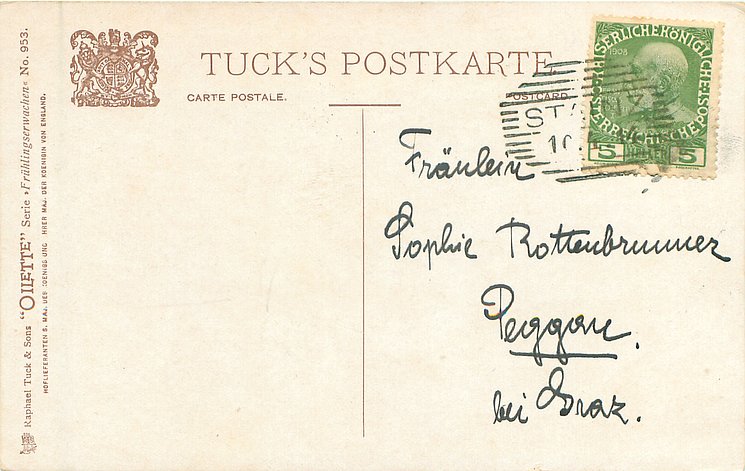 TUCK'S POSTKARTE
CARTE POSTALE. POSTCARD.
Fräulein
Sophie Rottenbrunner
Peggau.
bei Graz.
Raphael Tuck & Sons "OILETTE" Serie „Frühlingserwachen“ No. 953.
HOFLIEFERANTEN S. MAJ. DES KOENIGS UND IHRER MAJ. DER KOENIGIN VON ENGLAND.
1908
5 5